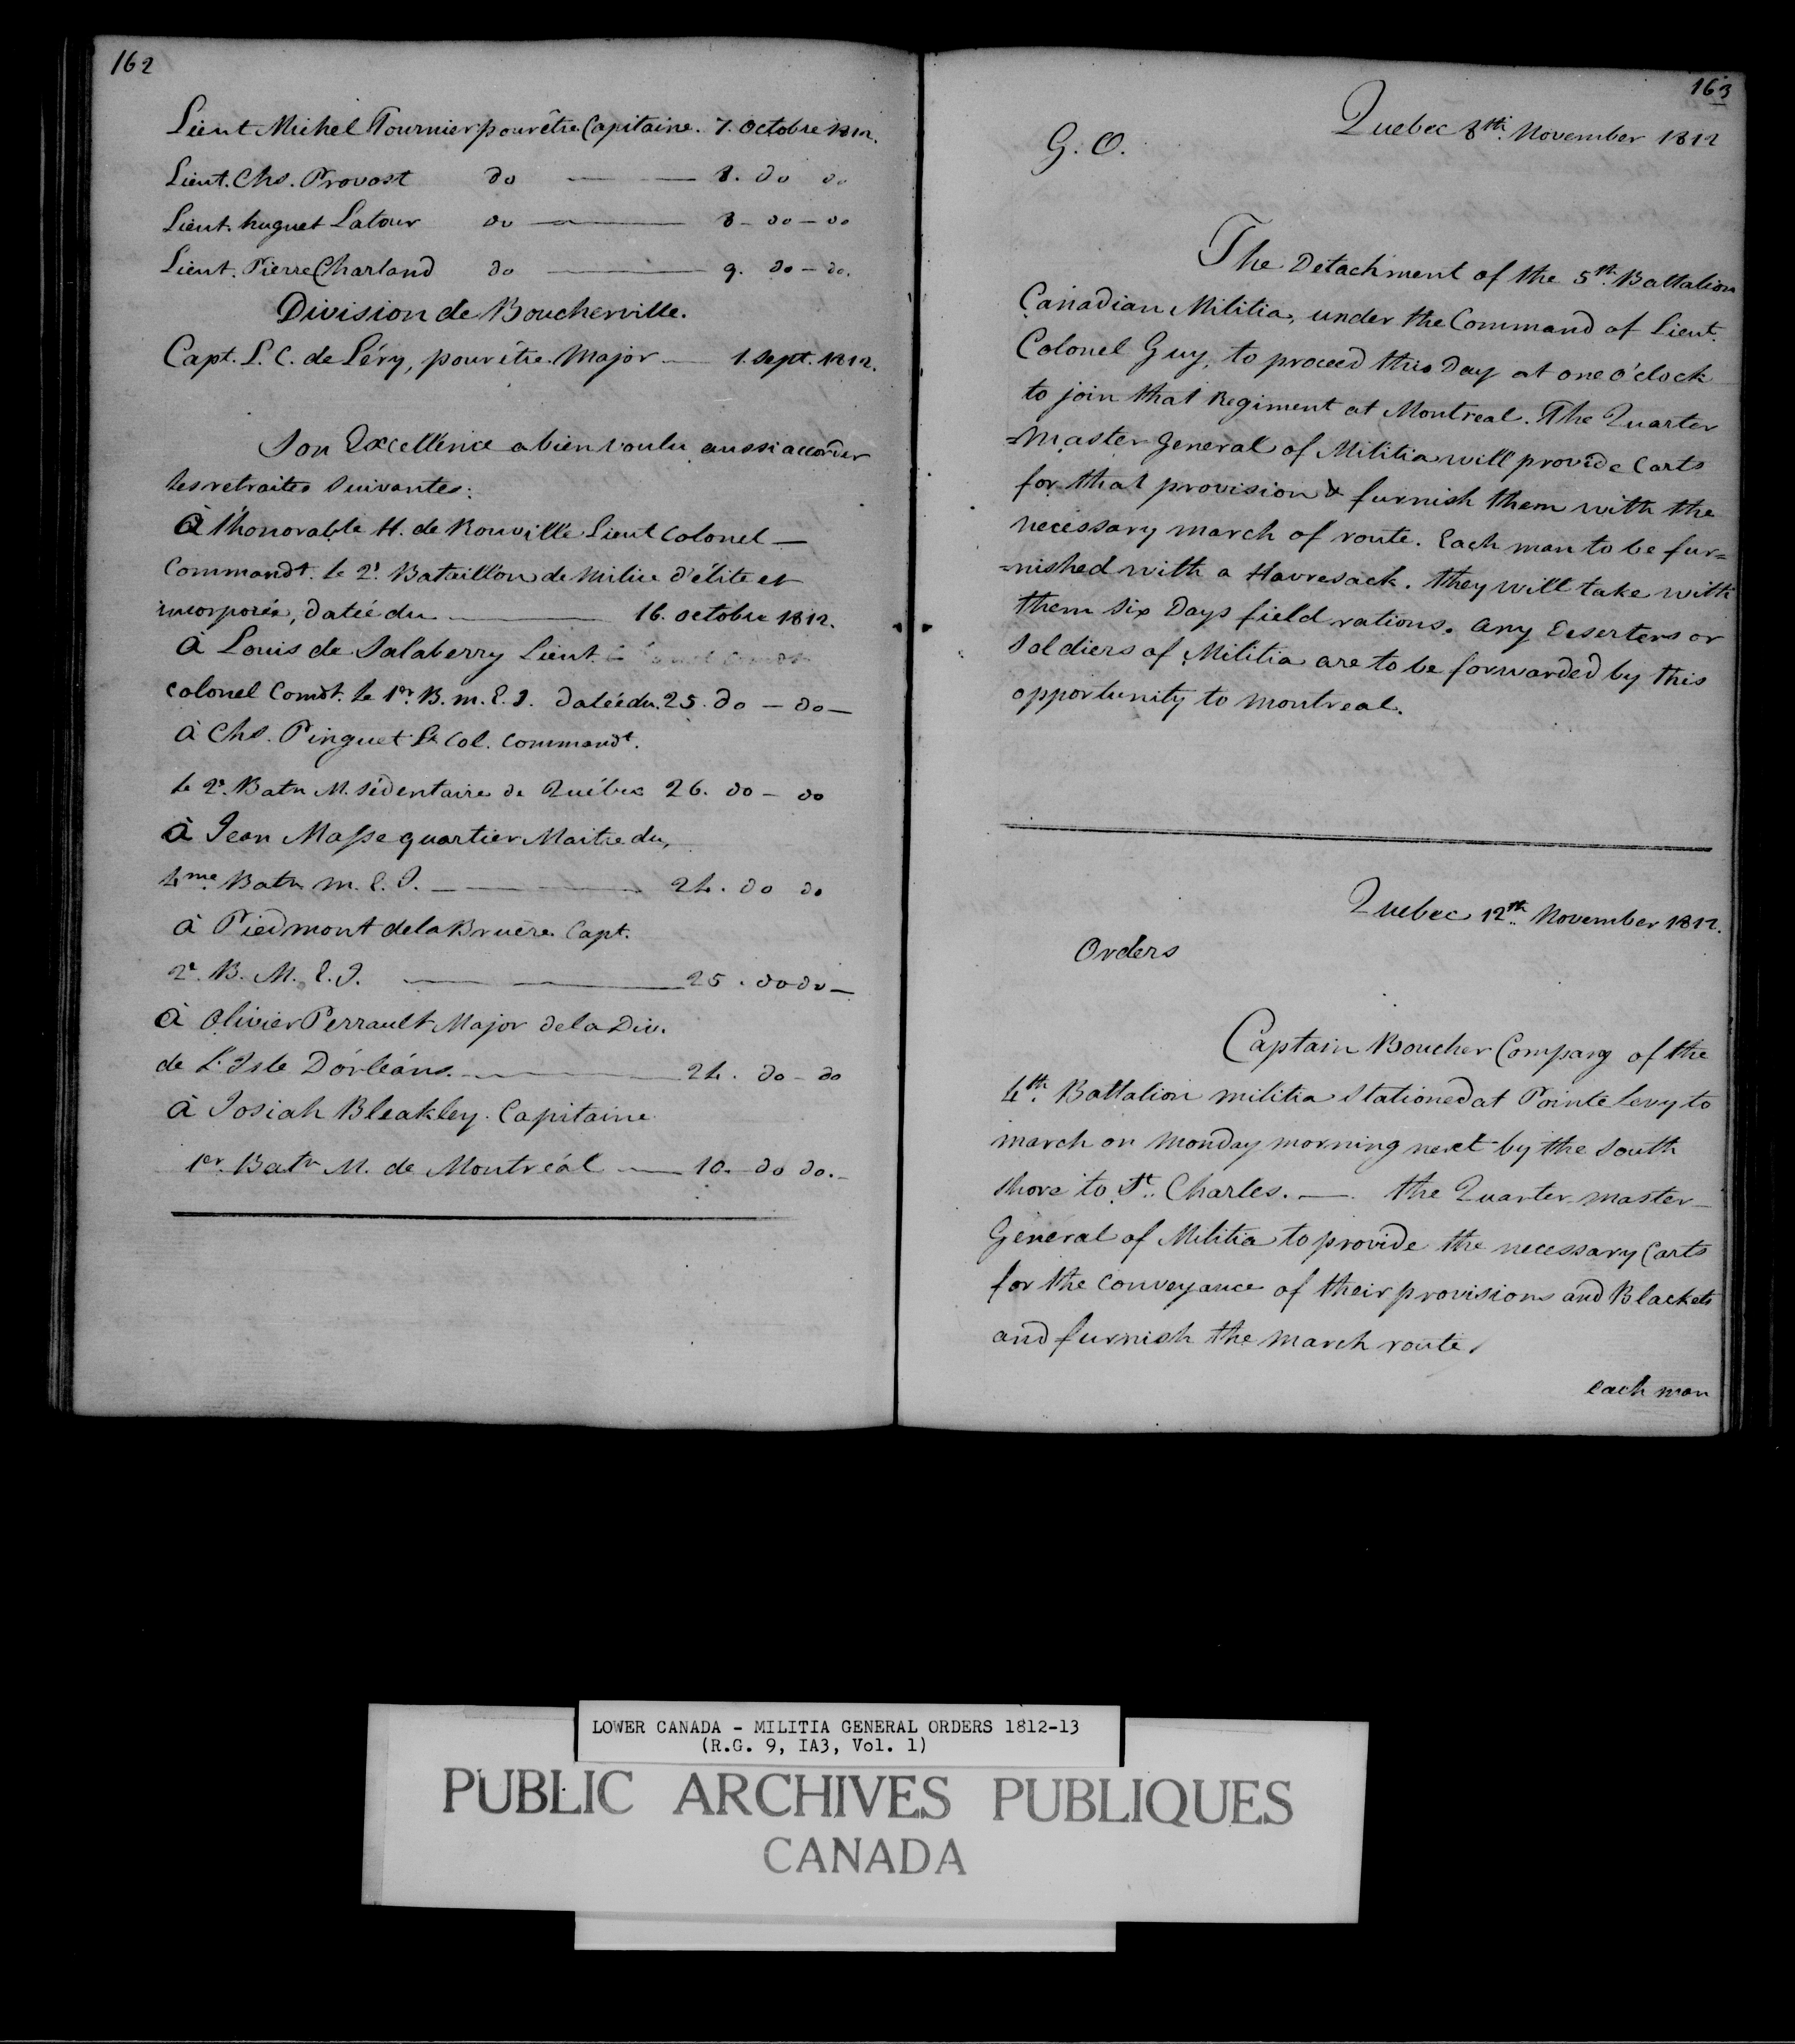 162
Lieut Michel Tournier pour être Capitaine. 7. Octobre 1812.
Lieut. Chs. Provost do — 8. do do
Lieut. huguet Latour do — 8 - do - do
Lieut. Pierre Charland do — 9. do - do.
Division de Boucherville.
Capt. L. C. de Léry, pour être Major — 1. Sept. 1812.
Son Excellence a bien voulu aussi accorder
les retraites Suivantes:
à l'honorable H. de Rouville Lieut Colonel —
Commandt. le 2d. Bataillon de Milice d'élite et
incorporée, datée du — 16. octobre 1812.
à Louis de Salaberry Lieut.
Colonel Comdt. le 1er. B. m. E. I. datée du 25. do — do —
à Chs. Pinguet Lt Col. Commandt.
le 2e. Batn M. Sédentaire de Québec 26. do — do
à Jean Masse quartier Maitre du,
4me. Batn m. E. I. — 24. do do
à Piedmont de la Bruère. Capt.
2e. B. M. E. I. — 25. do do —
à Olivier Perrault Major de la Div.
de L'Isle D'orléans. — 24. do - do
à Josiah Bleakley. Capitaine
1er. Batn M. de Montréal — 10. do do. -
163
Quebec 8th. November 1812
G. O.
The Detachment of the 5th. Battalion
Canadian Militia, under the Command of Lieut.
Colonel Guy, to proceed this Day at one o'clock
to join that Regiment at Montreal. The Quarter
=Master General of Militia will provide Carts
for that provision & furnish them with the
necessary march of route. Each man to be fur=
=nished with a Havresack. they will take with
them six Days field rations. any Deserters or
Soldiers of Militia are to be forwarded by this
opportunity to Montreal.
Quebec 12th. November 1812.
Orders
Captain Boucher Company of the
4th. Battalion militia Stationed at Pointe Levy to
march on Monday morning next by the South
Shore to St. Charles. — the Quarter master
General of Militia to provide the necessary Carts
for the Conveyance of their provisions and Blackets
and furnish the March route,
each man
LOWER CANADA - MILITIA GENERAL ORDERS 1812-13
(R.G. 9, IA3, Vol. 1)
PUBLIC ARCHIVES PUBLIQUES
CANADA